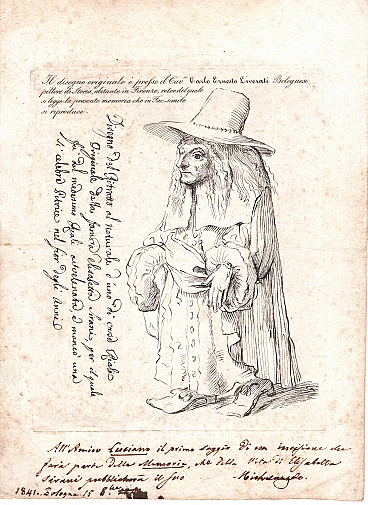 Il disegno originale è presso il Cav. Carlo Ernesto Liverati Bolognese
pittore di Storia, abitante in Firenze, retro del quale
si legge la presente memoria che in Fac-simile
si riproduce.
Disegno del Ritratto al naturale d'uno de' credi Rivali
Originale della pontra Elisabetta Sirani, per il quale
fu dal medesimo fatta avvelenare e mancò una
sì celebre Pitrice nel fior degli Anni
All'Amico Luciano il primo saggio di una incisione che
farà parte delle Memorie, che della Vita di Elisabetta
Sirani pubblicherà il suo Michelangelo.
1841. Bologna 15